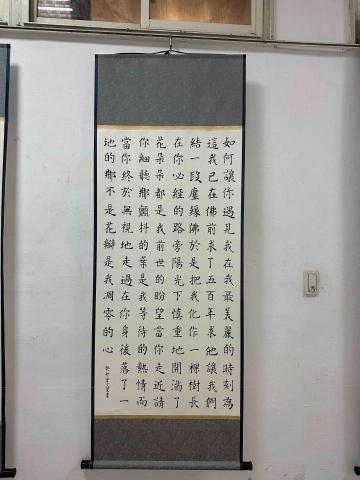 如何讓你遇見我在我最美麗的時刻為
這我已在佛前求了五百年求他讓我們
結一段塵緣佛於是把我化作一棵樹長
在你必經的路旁陽光下慎重地開滿了
花朵朵都是我前世的盼望當你走近請
你細聽那顫抖的葉是我等待的熱情而
當你終於無視地走過在你身後落了一
地的那不是花瓣是我凋零的心